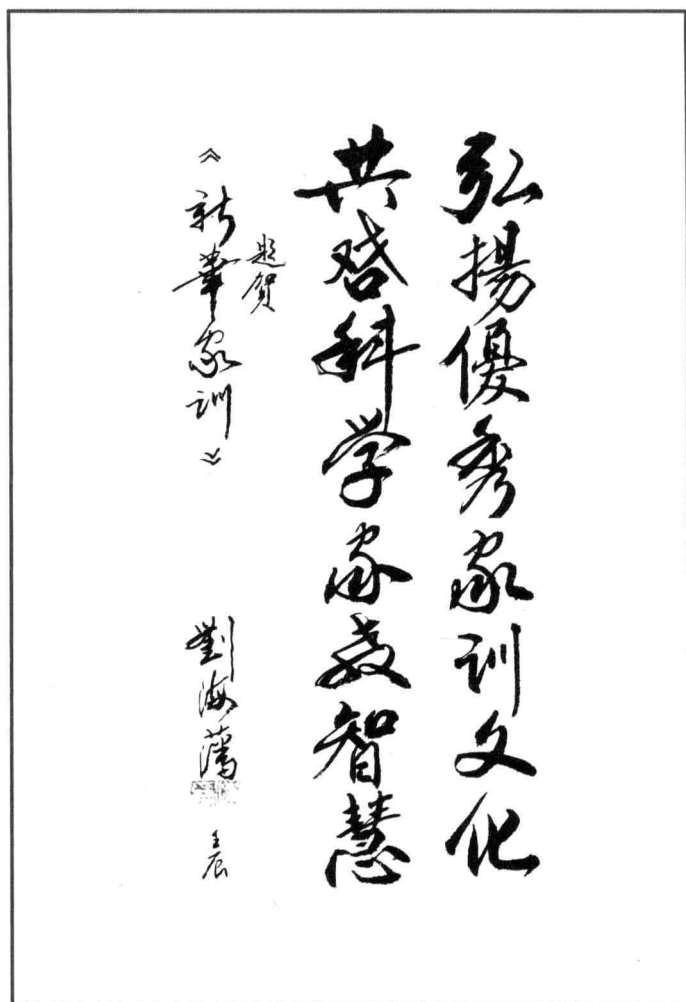 弘揚優秀家训文化
共啓科学家教智慧
題贺
《新華家训》
劉海藩
壬辰